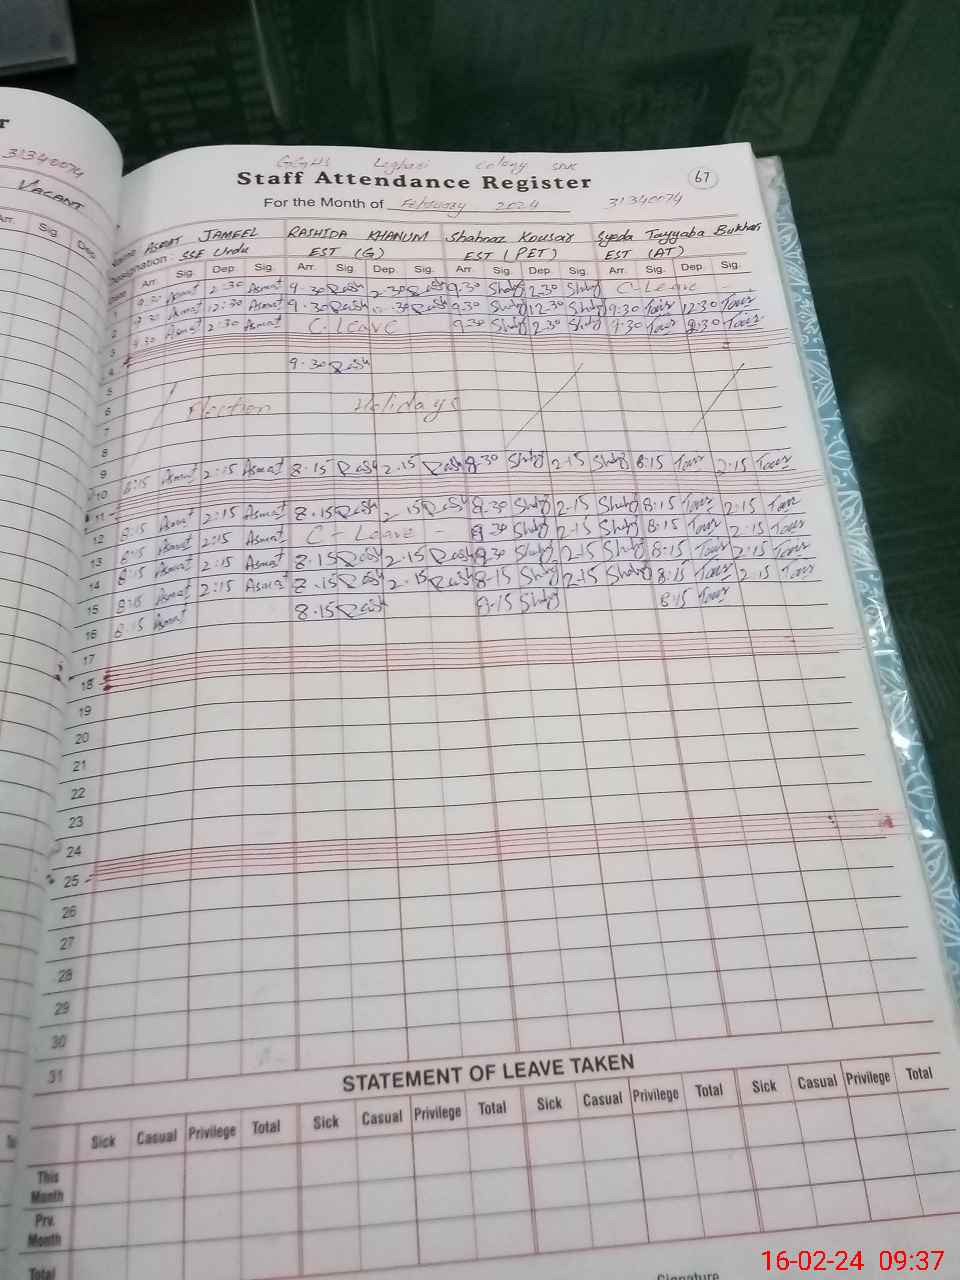 r
31340074
VACANT
Arr. Sig. Dep.
GGHS Leghari Colony
Staff Attendance Register 67
For the Month of February 2024 31340074
Name ASMAT JAMEEL RASHIDA KHANUM Shahnaz Kousar Syeda Tayyaba Bukhari
Designation : SSE Urdu EST (G) EST (PET) EST (AT)
Date Arr. Sig. Dep. Sig. Arr. Sig. Dep. Sig. Arr. Sig. Dep. Sig. Arr. Sig. Dep. Sig.
1 9:30 Asmat 2:30 Asmat 9.30 Rash 2.30 Rash 9.30 2.30 C-Leave -
2 Asmat 12:30 Asmat 9.30 Rash 12.30 Rash 9.30 12.30 9:30 12:30
3 9:30 Asmat 2:30 Asmat C-Leave 9.30 2.30 9.30
4
5 9.30 Rash
6
7 Election Holidays
8
9 8:15 Asmat 2:15 Asmat 8.15 Rash 2.15 Rash 8.30 2-15 8:15 2:15
10
11
12 8:15 Asmat 2:15 Asmat 8.15 Rash 2.15 Rash 8.30 2-15 8:15 2:15
13 8:15 Asmat 2:15 Asmat C-Leave - 8.30 2-15 8:15 2:15
14 8:15 Asmat 2:15 Asmat 8.15 Rash 2.15 Rash 8.30 2-15 8:15 2:15
15 8:15 Asmat 2:15 Asmat 8.15 Rash 2.15 Rash 8-15 2-15 8:15 2:15
16 8:15 Asmat 8.15 Rash 8-15 8:15
17
18
19
20
21
22
23
24
25
26
27
28
29
30
31
STATEMENT OF LEAVE TAKEN
Sick Casual Privilege Total Sick Casual Privilege Total Sick Casual Privilege Total Sick Casual Privilege Total
This Month
Prv. Month
Total
Signature
16-02-24 09:37